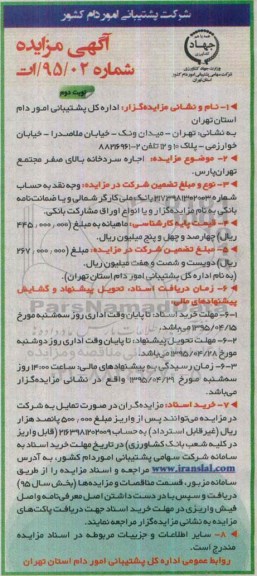 شرکت پشتیبانی امور دام کشور
آگهی مزایده
شماره ۹۵/۰۲/ات
نوبت دوم
جهاد
وزارت جهاد کشاورزی
شرکت سهامی پشتیبانی امور دام کشور
استان تهران
۱- نام و نشانی مزایده‌گزار: اداره کل پشتیبانی امور دام
استان تهران
به نشانی: تهران - میدان ونک - خیابان ملاصدرا - خیابان
خوارزمی - پلاک ۱۰ و ۱۲ تلفن ۲-۸۸۲۱۶۹۶۱
۲- موضوع مزایده: اجاره سردخانه بالای صفر مجتمع
تهران‌پارس.
۳- نوع و مبلغ تضمین شرکت در مزایده: وجه نقد به حساب
شماره ۲۱۷۳۹۸۱۳۰۲۰۰۳ بانک ملی کارگر شمالی و یا ضمانت‌نامه
بانکی به نام مزایده‌گزار و یا انواع اوراق مشارکت بانکی.
۴- قیمت پایه کارشناسی: ماهیانه به مبلغ (۴۴۵,۰۰۰,۰۰۰
ریال) چهارصد و چهل و پنج میلیون ریال.
۵- مبلغ تضمین شرکت در مزایده: مبلغ (۲۶۷,۰۰۰,۰۰۰
ریال) دویست و شصت و هفت میلیون ریال.
(به نام اداره کل پشتیبانی امور دام استان تهران).
۶- زمان دریافت اسناد، تحویل پیشنهاد و گشایش
پیشنهادهای مالی:
۶-۱- مهلت خرید اسناد: تا پایان وقت اداری روز سه‌شنبه مورخ
۱۳۹۵/۰۴/۱۵ می‌باشد.
۶-۲- مهلت تحویل پیشنهاد: تا پایان وقت اداری روز دوشنبه
مورخ ۱۳۹۵/۰۴/۲۸ می‌باشد.
۶-۳- زمان رسیدگی به پیشنهادهای مالی: ساعت ۱۴:۰۰ روز
سه‌شنبه مورخ ۱۳۹۵/۰۴/۲۹ واقع در نشانی مزایده‌گزار
می‌باشد.
۷- خرید اسناد: مزایده‌گران در صورت تمایل به شرکت
در مزایده می‌توانند پس از واریز مبلغ ۵۰۰,۰۰۰ پانصد هزار
ریال (غیر قابل استرداد) به حساب ۲۱۶۳۹۸۱۳۰۲۰۰۹ (قابل واریز
در کلیه شعب بانک کشاورزی) در تاریخ مهلت خرید اسناد به
سامانه شرکت سهامی پشتیبانی امور دام کشور، به آدرس
www.iranslal.com مراجعه و اسناد مزایده را از طریق
سامانه مزبور، قسمت مناقصات و مزایده‌ها (بخش سال ۹۵)
دریافت و سپس با در دست داشتن اصل معرفی‌نامه و اصل
فیش واریزی در مهلت خرید اسناد جهت دریافت پاکت‌های
مزایده به نشانی مزایده‌گزار مراجعه نمایند.
۸- سایر اطلاعات و جزییات مربوطه در اسناد مزایده
مندرج است.
روابط عمومی اداره کل پشتیبانی امور دام استان تهران